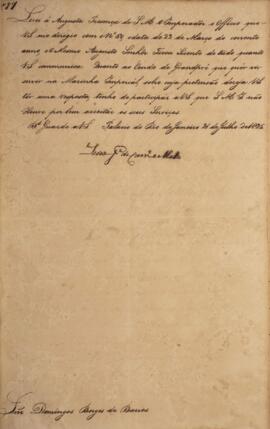 Levei á Augusta Presença de S. M. o Imperador o Officio que
V.S. me dirigio com o Nº 69 e data de 23 de Março do corrente
anno, e o Mesmo Augusto Senhor Ficou Sciente de tudo quanto
V.S. communica. Quanto ao Conde de Grandpré que quer
servir na Marinha Imperial, sobre cuja pretenção deseja V.S.
ter uma resposta, tenho de participar a V.S. que S. M. I. não
Houve por bem acceitar os seus Serviços
Dˢ Guarde a V.S. Palacio do Rio de Janeiro 21 de Julho de 1824
Luiz Jᵉ de Carvº e Mello
Snr Domingos Borges de Barros